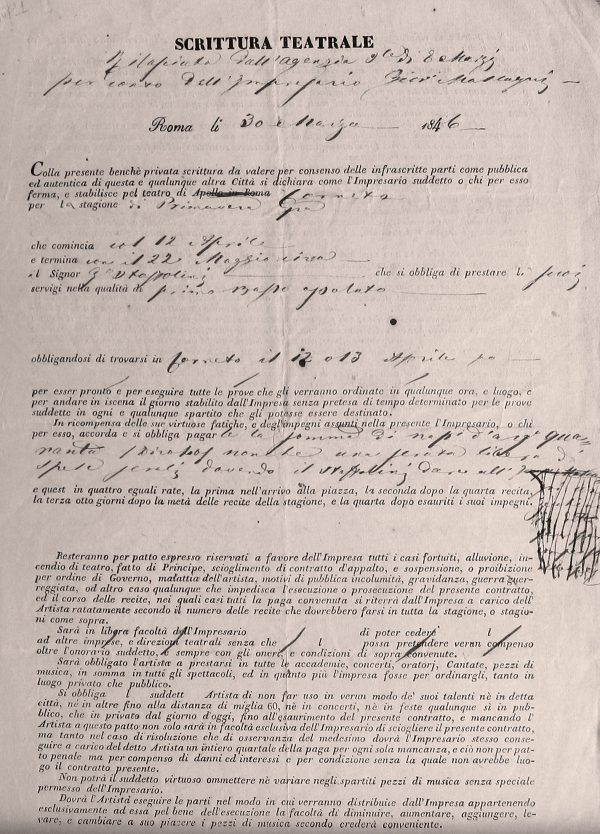 SCRITTURA TEATRALE
Rilasciata dall'Agenzia di
per conto dell'Impresario
Roma li 30 Marzo 1846
Colla presente benchè privata scrittura da valere per consenso delle infrascritte parti come pubblica
ed autentica di questa e qualunque altra Città si dichiara come l'Impresario suddetto o chi per esso
ferma, e stabilisce pel teatro di Apollo in Roma Corneto
per la stagione di Primavera
che comincia col 12 Aprile
e termina con il 22 Maggio circa
il Signor che si obbliga di prestare i suoi
servigi nella qualità di primo Basso assoluto
obbligandosi di trovarsi in Corneto il 12 o 13 Aprile
per esser pronto e per eseguire tutte le prove che gli verranno ordinate in qualunque ora, e luogo, e
per andare in iscena il giorno stabilito dall'Impresa senza pretesa di tempo determinato per le prove
suddette in ogni e qualunque spartito che gli potesse essere destinato.
In ricompensa delle sue virtuose fatiche, e degl'impegni assunti nella presente l'Impresario, o chi
per esso, accorda e si obbliga pagare la somma di
quaranta
dovendo il dare all'
e quest in quattro eguali rate, la prima nell'arrivo alla piazza, la seconda dopo la quarta recita,
la terza otto giorni dopo la metà delle recite della stagione, e la quarta dopo esauriti i suoi impegni.
Resteranno per patto espresso riservati a favore dell'Impresa tutti i casi fortuiti, alluvione, in-
cendio di teatro, fatto di Principe, scioglimento di contratto d'appalto, e sospensione, o proibizione
per ordine di Governo, malattia dell'artista, motivi di pubblica incolumità, gravidanza, guerra guer-
reggiata, od altro caso qualunque che impedisca l'esecuzione o prosecuzione del presente contratto,
ed il corso delle recite, nei quali casi tutti la paga convenuta si riterrà dall'Impresa a carico dell'
Artista ratatamente secondo il numero delle recite che dovrebbero farsi in tutta la stagione, o stagio-
ni come sopra.
Sarà in libera facoltà dell'Impresario di poter cedere l
ad altre imprese, e direzioni teatrali senza che l possa pretendere verun compenso
oltre l'onorario suddetto, e sempre con gli oneri, e condizioni di sopra convenute.
Sarà obbligato l'Artista a prestarsi in tutte le accademie, concerti, oratorj, Cantate, pezzi di
musica, in somma in tutti gli spettacoli, ed in quanto più l'impresa fosse per ordinargli, tanto in
luogo privato che pubblico.
Si obbliga l suddett Artista di non far uso in verun modo de' suoi talenti nè in detta
città, nè in altre fino alla distanza di miglia 60, nè in concerti, nè in feste qualunque sì in pub-
blico, che in privato dal giorno d'oggi, fino all'esaurimento del presente contratto, e mancando l'
Artista a questo patto non solo sarà in facoltà esclusiva dell'Impresario di sciogliere il presente contratto,
ma tanto nel caso di risoluzione che di osservanza del medesimo dovrà l'Impresario stesso conse-
guire a carico del detto Artista un intiero quartale della paga per ogni sola mancanza, e ciò non per pat-
to penale ma per compenso di danni ed interessi e per condizione senza la quale non avrebbe luo-
go il contratto presente.
Non potrà il suddetto virtuoso ommettere nè variare negli spartiti pezzi di musica senza speciale
permesso dell'Impresario.
Dovrà l'Artista eseguire le parti nel modo in cui verranno distribuite dall'Impresa appartenendo
esclusivamente ad essa pel bene dell'esecuzione la facoltà di diminuire, aumentare, aggiungere, le-
vare, e cambiare a suo piacere i pezzi di musica secondo crederà conveniente.